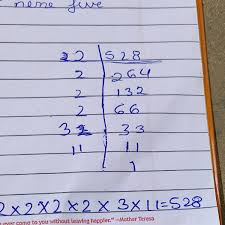 name five
2 528
2 264
2 132
2 66
3 33
11 11
1
2×2×2×2×3×11=528
ever come to you without leaving happier." —Mother Teresa